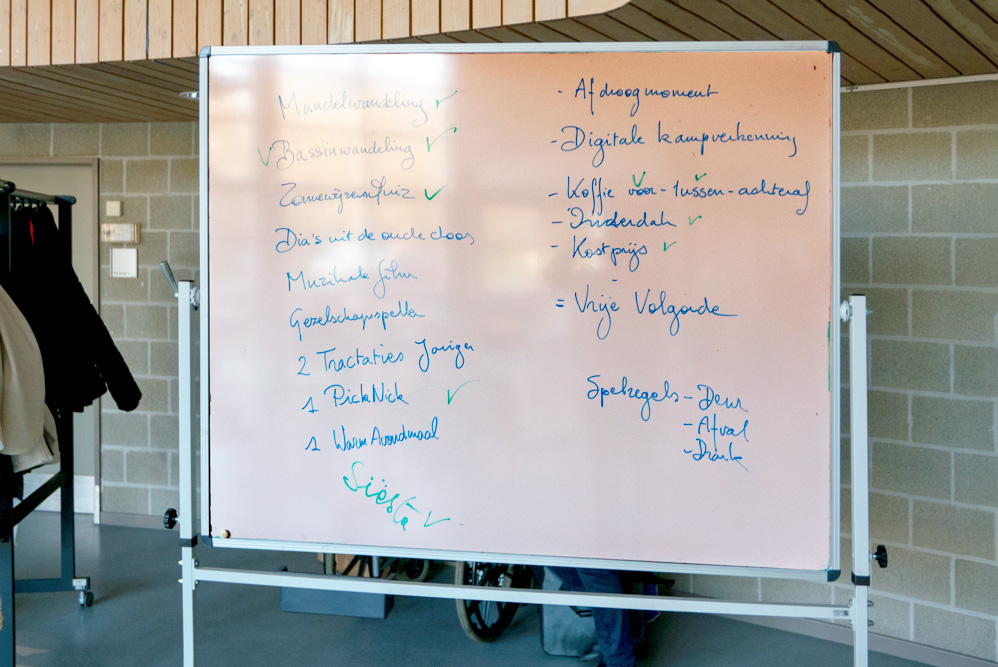 Mandelwandeling ✓
✓ Bassinwandeling ✓
Zomerwijzerquiz ✓
Dia's uit de oude doos
Muzikale film
Gezelschapspellen
2 Tractaties Jarigen
1 PickNick ✓
1 Warm Avondmaal
Siësta ✓
- Afdroogmoment
- Digitale kampverkenning
- Koffie voor - tussen - achteraf
- Inderdah ✓
- Kostprijs ✓
= Vrije Volgorde
Spelregels - Deur
- Afval
- Drank